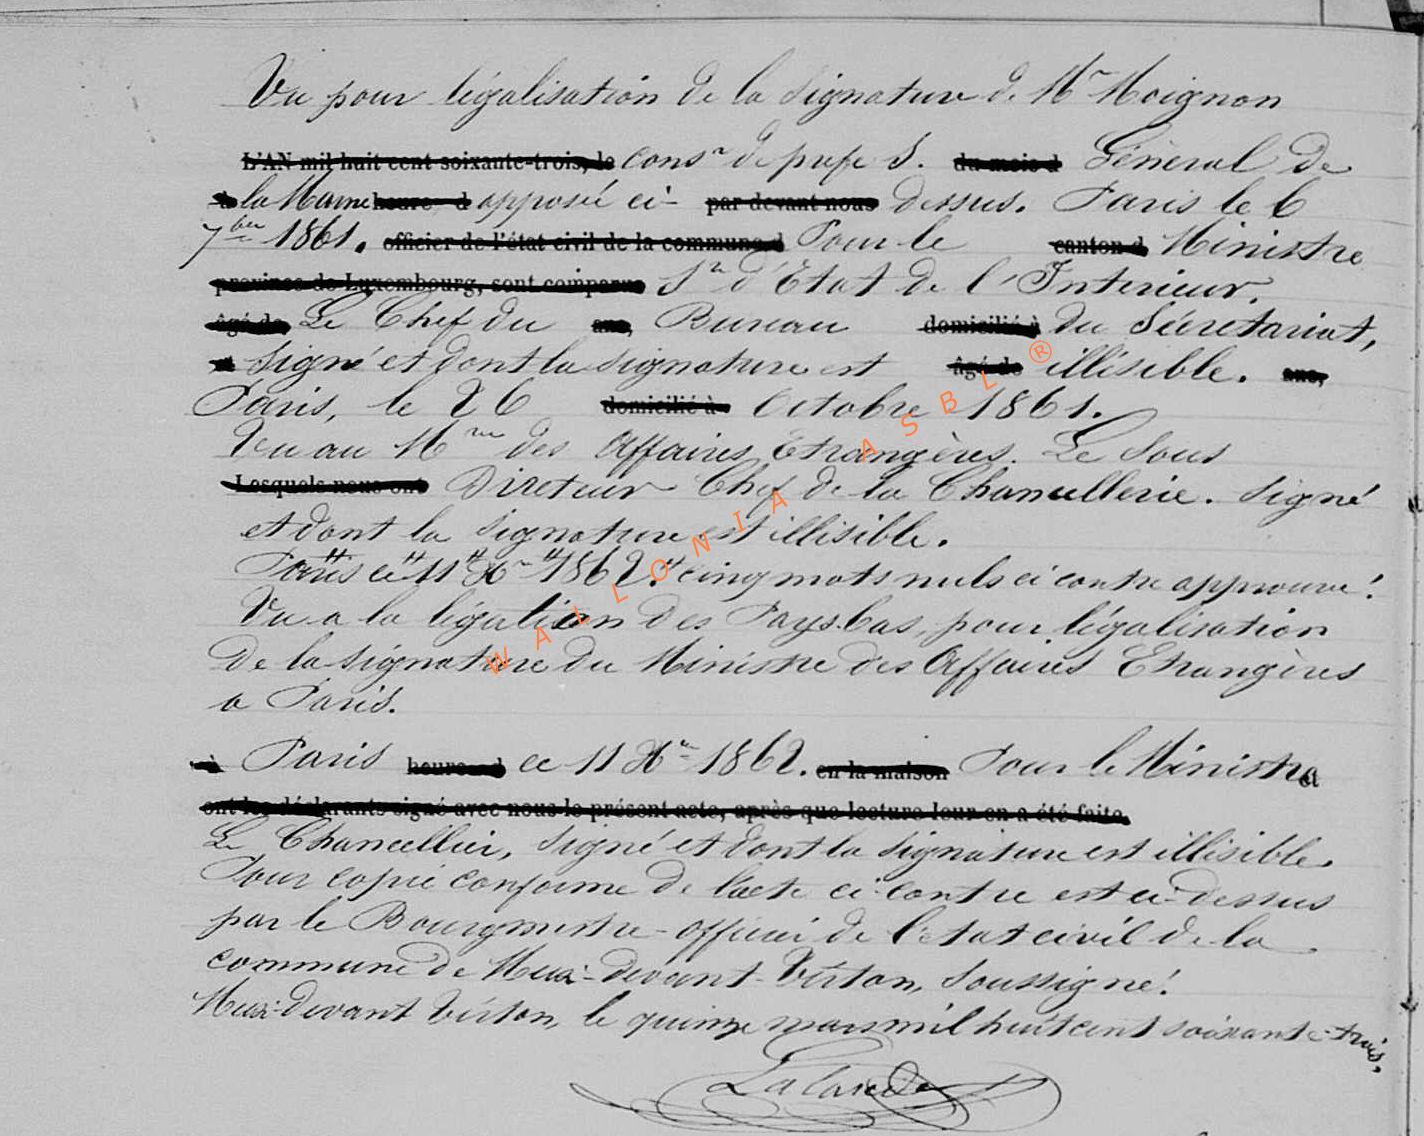 Vu pour légalisation de la signature de Mr Moignon
L'AN mil huit cent soixante-trois, le consr de préfe S. du mois d Général de
à la Marne heure d apposée ci- par devant nous dessus. Paris le 6
7bre 1861. officier de l'état civil de la commune d Pour le canton d Ministre
province de Luxembourg, sont comparus Sre d'Etat de l'Interieur.
âgé de Le Chef du ans, Bureau domicilié à du Sécretariat,
et Signé et dont la signature est âgé de illisible. ans,
Paris, le 26 domicilié à Octobre 1861.
Vu au Mre des Affaires Etrangères. Le Sous
Lesquels nous ont Directeur Chef de la Chancellerie. Signé
et dont la signature est illisible.
Paris ce 11 Xre 1862. cinq mots nuls ci contre approuvé!
Vu a la légation des Pays-bas, pour légalisation
De la signature du Ministre des Affaires Etrangères
a Paris.
à Paris heure d ce 11 Xre 1862. en la maison Pour le Ministre
ont les déclarants signé avec nous le présent acte, après que lecture leur en a été faite.
Le Chancellier, signé et dont la signature est illisible.
Pour copie conforme de l'acte ci-contre est ci-dessus
par le Bourgmestre-officier de l'état civil de la
commune de Meix-devant-Virton, soussigné!
Meix-devant Virton, le quinze mars mil huit cent soixante-trois.
WALLONIA ASBL ®